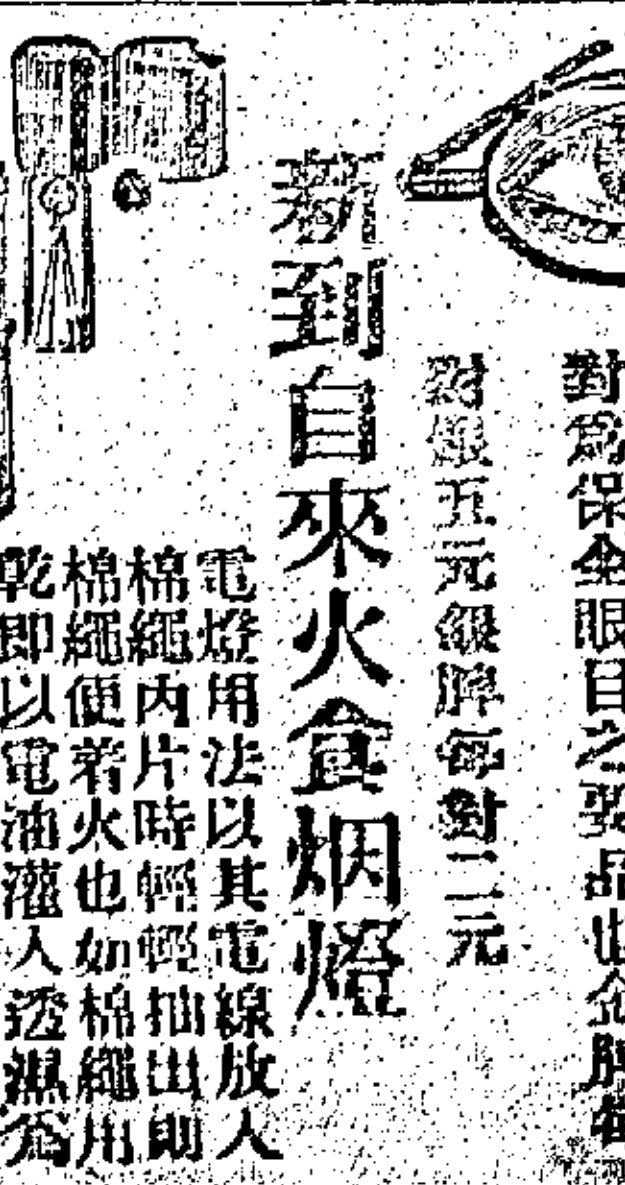 對為保全眼目之要品也金牌每
對銀五元銀牌每對二元
新到自來火食烟燈
電燈用法以其電線放入
棉繩內片時輕輕抽出則
棉繩便着火也如棉繩用
乾即以電油灌入透濕為